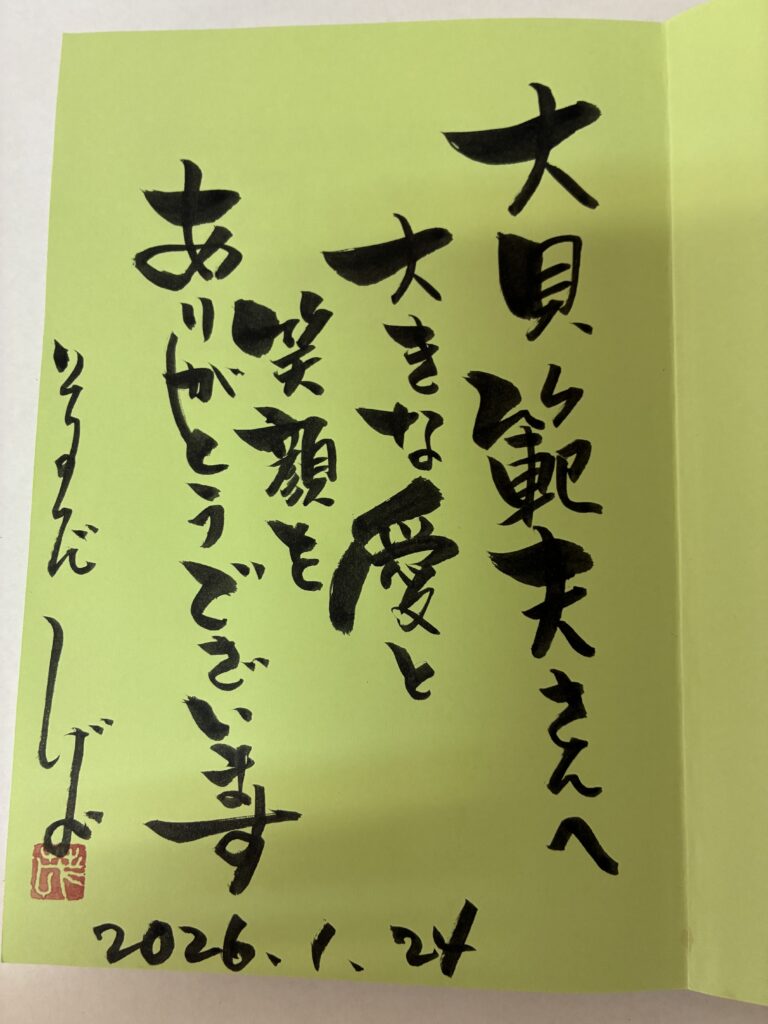 大貝範夫さんへ
大きな愛と
笑顔を
ありがとうございます
しげみ
2026.1.24